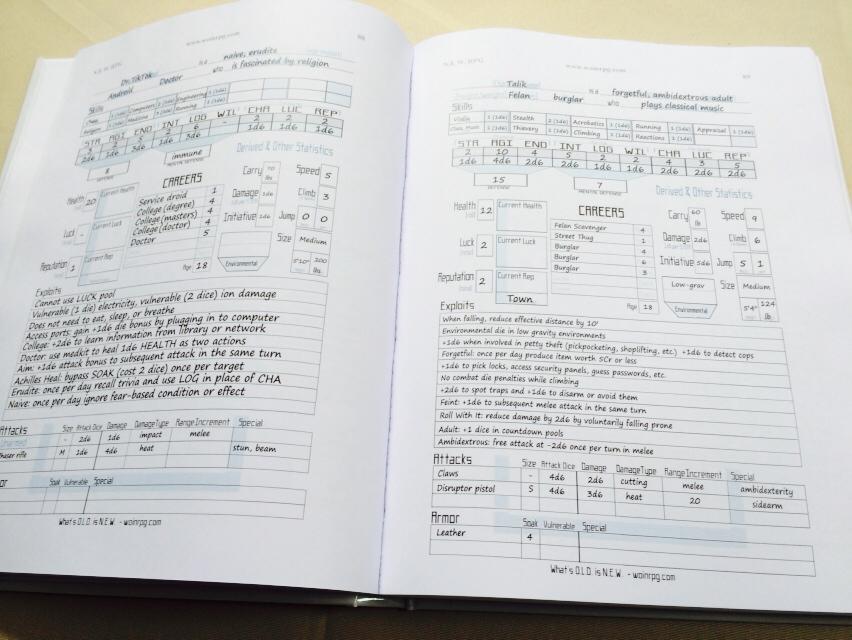 N.E.W. RPG
www.woinrpg.com
88
Dr. TikTok is a naive, erudite
Android Doctor who is fascinated by religion
Skills
Computers 2 (1d6) Engineering
Religion Medicine Running 1 (1d6)
STR AGI END INT LOG WIL CHA LUC REP
2d6 1d6 3d6 1d6 3d6 1d6 1d6 1d6
8 immune
DEFENSE MENTAL DEFENSE
Derived & Other Statistics
CAREERS
Health 20 Current Health
Service droid 1
College (degree) 4
College (masters) 4
College (doctor) 4
Doctor 5
Luck - Current Luck
Reputation 1 Current Rep
Age 18
Carry lbs Speed 5
Damage 1d6 Climb 3
Initiative 1d6 Jump 0 0
Size Medium
Environmental 5'10" 200 lbs
Exploits
Cannot use LUCK pool
Vulnerable (1 die) electricity, vulnerable (2 dice) ion damage
Does not need to eat, sleep, or breathe
Access ports: gain +1d6 die bonus by plugging in to computer
College: +2d6 to learn information from library or network
Doctor: use medkit to heal 1d6 HEALTH as two actions
Aim: +1d6 attack bonus to subsequent attack in the same turn
Achilles Heal: bypass SOAK (cost 2 dice) once per target
Erudite: once per day recall trivia and use LOG in place of CHA
Naive: once per day ignore fear-based condition or effect
Attacks Size Attack Dice Damage DamageType RangeIncrement Special
Unarmed - 2d6 1d6 impact melee
Phaser rifle M 1d6 4d6 heat stun, beam
Soak Vulnerable Special
What's O.L.D. is N.E.W. - woinrpg.com
N.E.W. RPG
www.woinrpg.com
89
Talik is a forgetful, ambidextrous adult
Felan burglar who plays classical music
Skills
1 (1d6) Stealth 2 (1d6) Acrobatics 1 (1d6) Running 1 (1d6) Appraisal 1 (1d6)
1 (1d6) Thievery 1 (1d6) Climbing 1 (1d6) Reactions 1 (1d6)
STR AGI END INT LOG WIL CHA LUC REP
2 10 4 5 2 2 4 3 5
1d6 4d6 2d6 2d6 1d6 1d6 2d6 2d6 2d6
15 7
DEFENSE MENTAL DEFENSE
Derived & Other Statistics
CAREERS
Health 12 Current Health
Felan Scavenger 4
Street Thug 1
Burglar 4
Burglar 6
Burglar 3
Luck 2 Current Luck
Reputation 2 Current Rep
Town
Age 18
Carry 60 lb Speed 9
Damage 2d6 Climb 6
Initiative 5d6 Jump 5 1
Low-grav Size Medium
Environmental 5'4" 124 lb
Exploits
When falling, reduce effective distance by 10'
Environmental die in low gravity environments
+1d6 when involved in petty theft (pickpocketing, shoplifting, etc.) +1d6 to detect cops
Forgetful: once per day produce item worth 5Cr or less
+1d6 to pick locks, access security panels, guess passwords, etc.
No combat die penalties while climbing
+2d6 to spot traps and +1d6 to disarm or avoid them
Feint: +1d6 to subsequent melee attack in the same turn
Roll With It: reduce damage by 2d6 by voluntarily falling prone
Adult: +1 dice in countdown pools
Ambidextrous: free attack at -2d6 once per turn in melee
Attacks Size Attack Dice Damage DamageType RangeIncrement Special
Claws - 4d6 2d6 cutting melee ambidexterity
Disruptor pistol S 4d6 3d6 heat 20 sidearm
Armor Soak Vulnerable Special
Leather 4
What's O.L.D. is N.E.W. - woinrpg.com